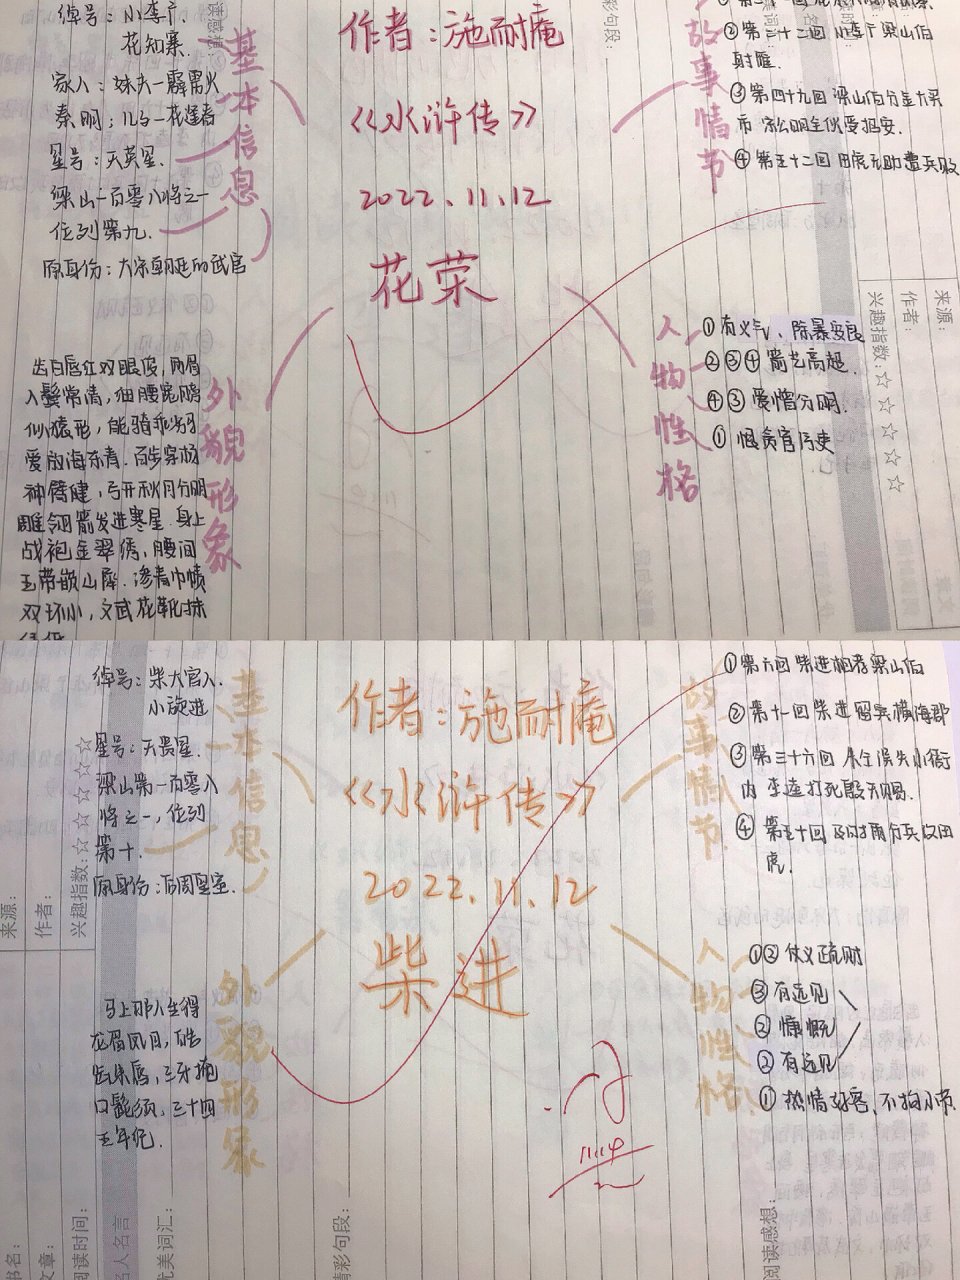 绰号：小李广、
花知寨.
家人：妹夫—霹雳火
秦明；儿子—花逢春
星号：天英星.
梁山一百零八将之一
位列第九.
原身份：大宋朝廷的武官
基本信息
作者：施耐庵
《水浒传》
2022.11.12
花荣
故事情节
②第三十二回 小李广梁山伯
射雁.
③第四十九回 梁山伯分金大买
市 宋公明全伙受招安.
人物性格
①有义气、除暴安良
②③④箭艺高超.
④③爱憎分明.
①恨贪官污吏
外貌形象
齿白唇红双眼俊，两眉
入鬓常清，细腰宽膀
似猿形，能骑乖劣马
爱放海东青.百步穿杨
神臂健，弓开秋月分明
雕翎箭发迸寒星.身上
战袍金翠绣，腰间
玉带嵌山犀.渗青巾帻
双环小，文武花靴抹
来源：
作者：
兴趣指数：☆☆☆☆☆
绰号：柴大官人、
小旋风
星号：天贵星.
梁山第一百零八
将之一，位列
第十.
原身份：后周皇室.
基本信息
作者：施耐庵
《水浒传》
2022.11.12
柴进
故事情节
②第十一回 柴进留宾横海郡
③第三十六回
内 李逵打死殷天赐.
人物性格
①②仗义疏财
③有远见
②慷慨
②有远见
①热情好客、不拘小节
外貌形象
马上那人生得
龙眉凤目，皓
齿朱唇，三牙掩
口髭须，三十四
五年纪.
11.14
来源：
作者：
兴趣指数：☆☆☆☆☆
书名：
文章：
阅读时间：
名人名言
优美词汇：
精彩句段：
阅读感想：